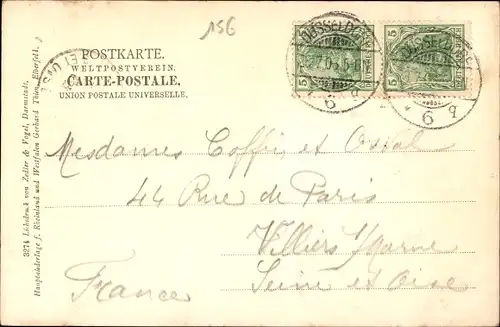 156
POSTKARTE.
WELTPOSTVEREIN.
CARTE-POSTALE.
UNION POSTALE UNIVERSELLE.
DÜSSELDORF
5 5
Mesdames Coffin et
44 Rue de Paris
Villiers s/Marne
Seine et Oise
France
3214 Lichtdruck von Zedler & Vogel, Darmstadt.
Hauptniederlage f. Rheinland und Westfalen Gerhard Thien, Elberfeld.